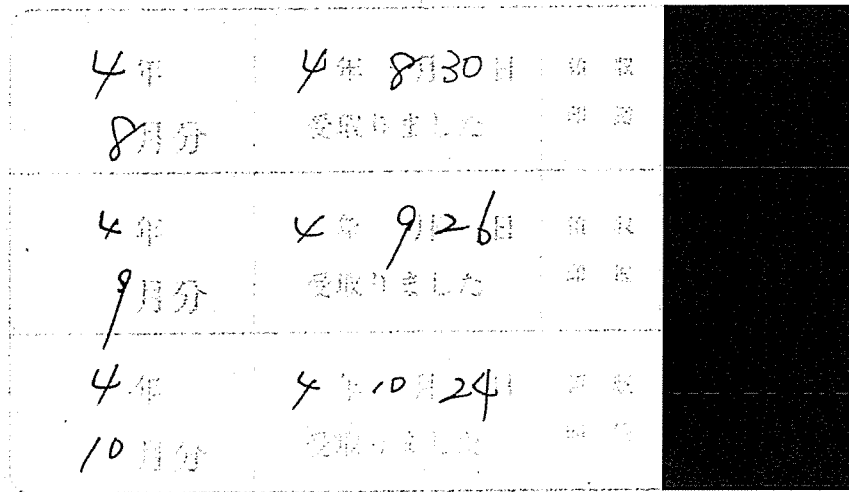 4年
8月分
4年 8月30日
受取りました
領収
印
4年
9月分
4年 9月26日
受取りました
領収
印
4年
10月分
4年10月24日
受取りました